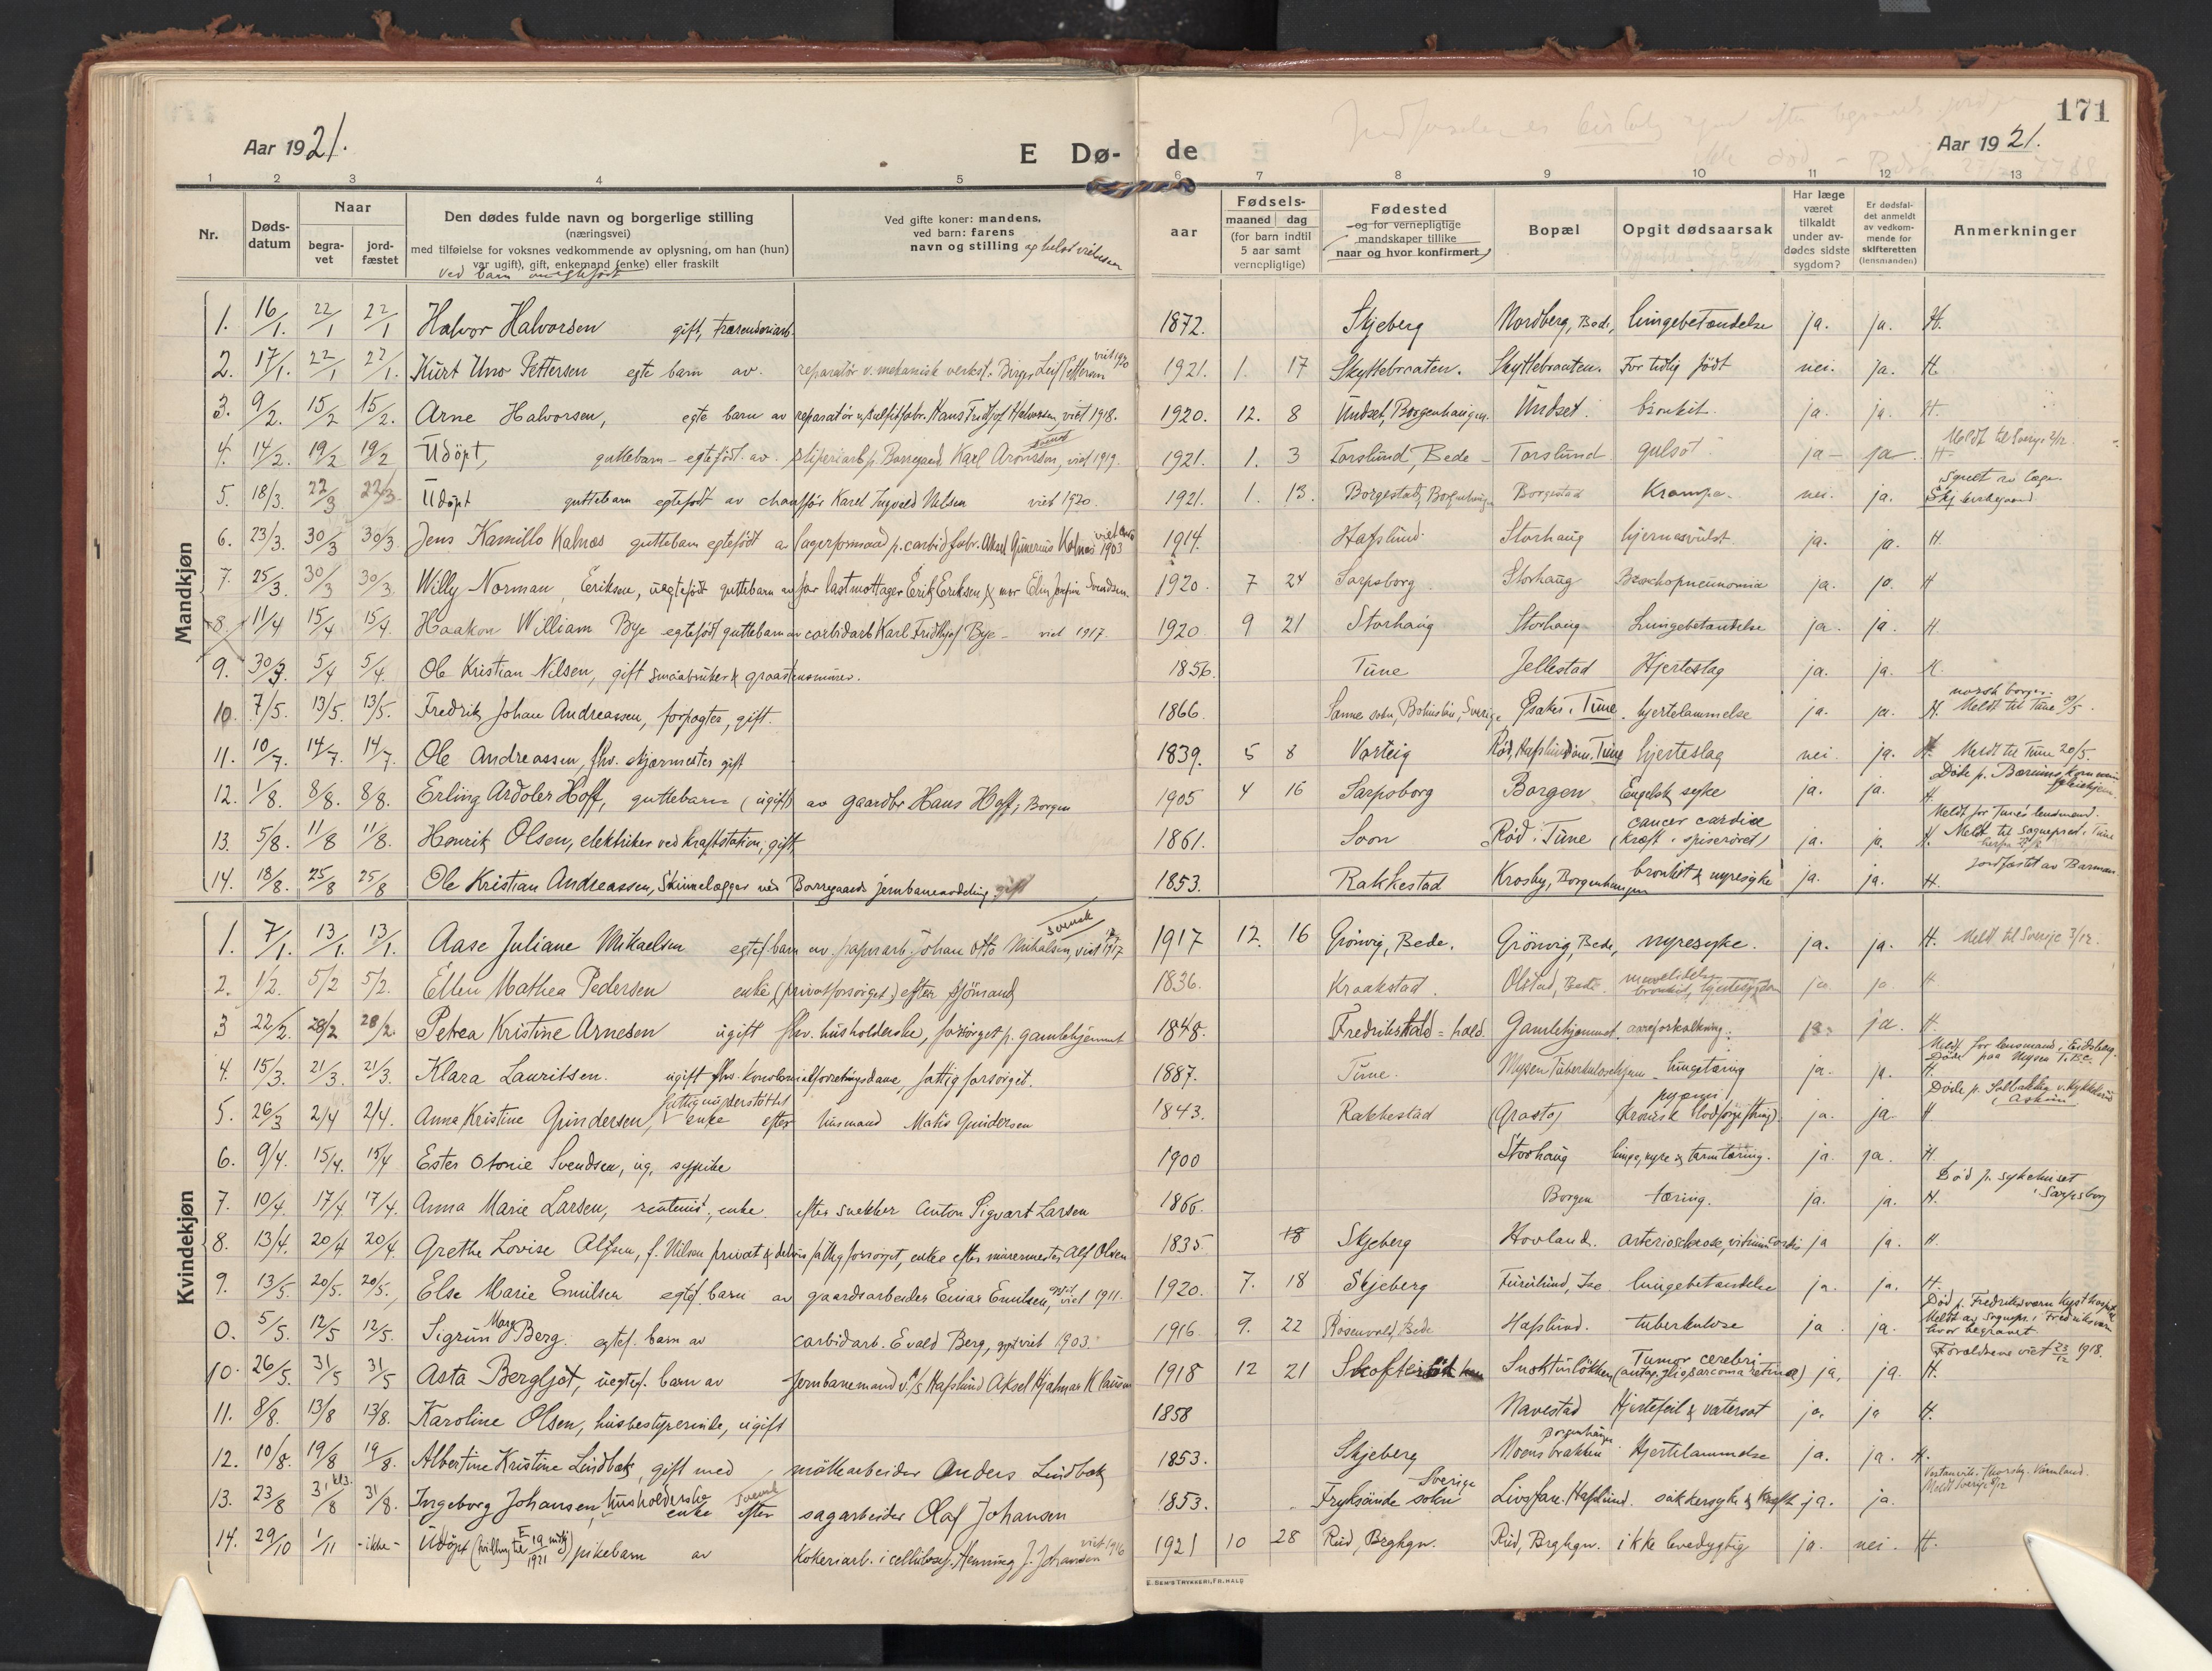 171
Aar 1921.
E Dø-
de
Aar 1921.
1 2 3 4 5 6 7 8 9 10 11 12 13
Nr.
Døds-
datum
Naar
begra-
vet
jord-
fæstet
Den dødes fulde navn og borgerlige stilling
(næringsvei)
med tilføielse for voksnes vedkommende av oplysning, om han (hun)
var ugift, gift, enkemand (enke) eller fraskilt
Ved barn om egtefødt
Ved gifte koner: mandens,
ved barn: farens
navn og stilling
aar
Fødsels-
maaned dag
(for barn indtil
5 aar samt
vernepligtige)
Fødested
og for vernepligtige
mandskaper tillike
naar og hvor konfirmert
Bopæl
Opgit dødsaarsak
Har læge
været
tilkaldt
under av-
dødes sidste
sygdom?
Er dødsfal-
det anmeldt
av vedkom-
mende for
skifteretten
(lensmanden)
Anmerkninger
Mandkjøn
1. 16/1. 22/1 22/1 Halvor Halvorsen gift, 1872. Skjeberg Nordberg, Bede, lungebetændelse ja. ja. H.
2. 17/1. 22/1 22/1. Kurt Uno Pettersen egte barn av. reparatør v. mekanisk verkst. Birger Leif Pettersen viet 1920 1921. 1. 17 Skyttebraaten. Skyttebraaten. For tidlig født nei. ja. H.
3. 9/2. 15/2 15/2. Arne Halvorsen, egte barn av reparatør v. sulfitfabr. Hans Fridtjof Halvorsen, viet 1918. 1920. 12. 8 Undset, Borgenhaugen. Undset. bronkit. ja. ja. H.
4. 14/2. 19/2 19/2 Udöpt, guttebarn - egtefödt. av. sliperiarb. p. Borregaard Karl Aronsson, viet 1919. svensk 1921. 1. 3 Torslund, Bede - Torslund gulsot ja - ja - H. Meldt til Sverige 3/12.
5. 18/3. 22/3 22/3. Udöpt guttebarn egtefødt av chauffør Karel Ingvald Nelsen viet 1920. 1921. 1. 13. Borgestad, Borgenhaugen Borgestad Krampe. nei. ja.
6. 23/3. 30/3 30/3 Jens Kamillo Kalnæs guttebarn egtefödt av lagerformand p. carbidfabr. Aksel Gunerius Kalnæs viet 1903 1914. Hafslund. Storhaug hjernesvulst. ja. ja. H.
7. 25/3. 30/3 30/3. Willy Norman Eriksen, uegtefödt guttebarn av far lastmottager Erik Eriksen & mor Svendsen. 1920. 7 24 Sarpsborg Storhaug Bronchopneumonia ja. ja. H
8. 11/4 15/4 15/4. Haakon William Bye egtefödt guttebarn av carbidarb Karl Fridthjof Bye - viet 1917. 1920 9 21 Storhaug Storhaug Lungebetændelse ja. ja. H.
9. 30/3. 5/4 5/4. Ole Kristian Nilsen, gift smaabruker & graastensminer. 1856. Tune Jellestad Hjerteslag ja. ja. H.
10. 7/5. 13/5. 13/5. Fredrik Johan Andreassen, forpagter, gift. 1866. Sanne sokn, Bohuslän, Sverige Tune. hjertelammelse ja. ja. H. norsk borger. Meldt til Tune
11. 10/7. 14/7. 14/7. Ole Andreassen, fhv. skjærmester gift 1839. 5 8 Varteig Rød, Hafslund, Tune hjerteslag nei. ja. H. Meldt til Tune 20/5.
12. 1/8. 8/8. 8/8. Erling Ardoler Hoff, guttebarn (ugift) av gaardbr Hans Hoff, Borgen 1905 4 16 Sarpsborg Borgen Engelsk syke ja. ja. H.
13. 5/8. 11/8 11/8. Henrik Olsen, elektriker ved kraftstation, gift, 1861. Soon Rød i Tune cancer cardiæ (kræft i spiserøret) ja. ja. H. Meldt for Tunes lensmand. Meldt til sognepræst i Tune
14. 18/8. 25/8 25/8 Ole Kristian Andreassen, Skinnelægger ved Borregaards jernbaneavdeling gift 1853. Rakkestad Krosby, Borgenhaugen bronkit & nyresyke ja. ja. H. Jordfæstet av Barman
Kvindekjøn
1. 7/1. 13/1. 13/1. Aase Juliane Mikaelsen egtef. barn av. papirarb. Johan Otto Mikalsen, viet 1917 svensk 1917 12. 16 Grönvig, Bede. Grönvig, Bede, nyresyke. ja. ja. H. Meldt til Sverige 3/12.
2. 1/2. 5/2 5/2. Ellen Mathea Pedersen enke (privatforsørget) efter sjömand 1836. Kraakstad. Olstad, Bede. bronkit, hjertesygdom ja ja H
3 22/2. 28/2 28/2. Petrea Kristine Arnesen ugift fhv. husholderske, forsørget p. gamlehjemmet 1848. Fredrikshald = hald. Gamlehjemmet. aareforkalkning. ja. ja. H.
4. 15/3. 21/3. 21/3. Klara Lauritsen. ugift fhv. kolonialforretningsdame, fattigforsørget. 1887. Tune. Mysen Tuberkulosehjem lungetæring ja. ja. H. Meldt for lensmand i Eidsberg. Døde paa Mysen T.B.C.
5. 26/3 2/4 2/4. Anna Kristine Gundersen, fattigunderstøttet enke efter husmand Mats Gundersen 1843. Rakkestad (Kronisk blodforgiftning). ja. ja H Døde p. v. Kykkelsrud i Askim
6. 9/4. 15/4. 15/4 Ester Otonie Svendsen, ug. sypike 1900 Storhaug lunge, nyre & tarmtæring. ja. ja. H.
7. 10/4. 17/4 17/4. Anna Marie Larsen, rentenist, enke. efter snekker Anton Sigvart Larsen 1866. Borgen tæring. ja. ja. H. Død p. sykehuset i Sarpsborg
8. 13/4. 20/4 20/4. Grethe Lovise Alfsen, f. Nilsen privat & delvis fattigforsørget, enke efter minermester Alf Olsen 1835. 18 Skjeberg Hovland. arteriosclerose, vitium cordis ja ja. H.
9. 13/5. 20/5. 20/5. Else Marie Emilsen egtef. barn av gaardsarbeider Einar Emilsen, viet 1911. 1920. 7. 18 Skjeberg Furulund, Ise lungebetændelse ja. ja. H.
0. 5/5. 12/5 12/5. Sigrun Marg. Berg. egtef. barn av carbidarb. Evald Berg, viet 1903. 1916 9. 22 Rosenvold, Bede Hafslund. tuberkulose ja. ja. Død p. Fredriksværn Kysthospital Meldt av sognepr. i Fredriksværn hvor begravet
10. 26/5. 31/5 31/5 Asta Bergljot, uegtef. barn av Jernbanemand v. A/S Hafslund Aksel Hjalmar Klausen 1918 12 21 Tumor cerebri (antag. gliosarcoma retinæ) ja, ja. H. Forældrene viet 23/12 1918.
11. 8/8. 13/8 13/8. Karoline Olsen, husbestyrerinde, ugift 1858 Navestad Hjertefeil & vatersot ja. ja H.
12. 10/8. 19/8 19/8. Albertine Kristine Lindbæk, gift med møllearbeider Anders Lindbæk 1853. Skjeberg Moensbrækken Borgenhaugen Hjertelammelse ja. ja. H.
13. 23/8 31/8 31/8. Ingeborg Johansen, husholderske enke efter svensk sagarbeider Olaf Johansen 1853. Fryksände sokn Sverige Hafslund. sukkersyke & kræft ja. ja.
14. 29/10 1/11 - ikke - Udöpt pikebarn av Kokeriarb. i cellulosef. Henning J. Johansen viet 1916 1921 10 28 Rud, Brghgn. Rud, Brghgn. ikke levedygtig ja. nei. H.
E. SEM'S TRYKKERI, FR.HALD